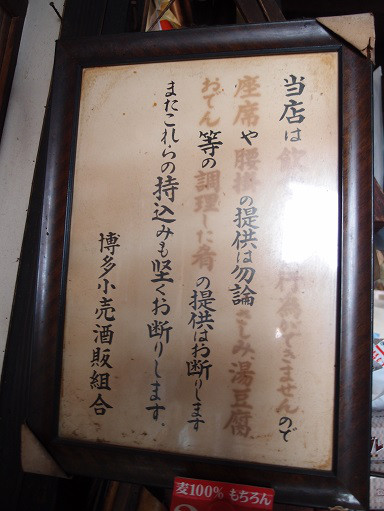 当店は飲 行為ができませんので
座席や腰掛の提供は勿論さしみ、湯豆腐
おでん等の調理した肴の提供はお断りします
またこれらの持込みも堅くお断りします。
博多小売酒販組合
麦100% もちろん